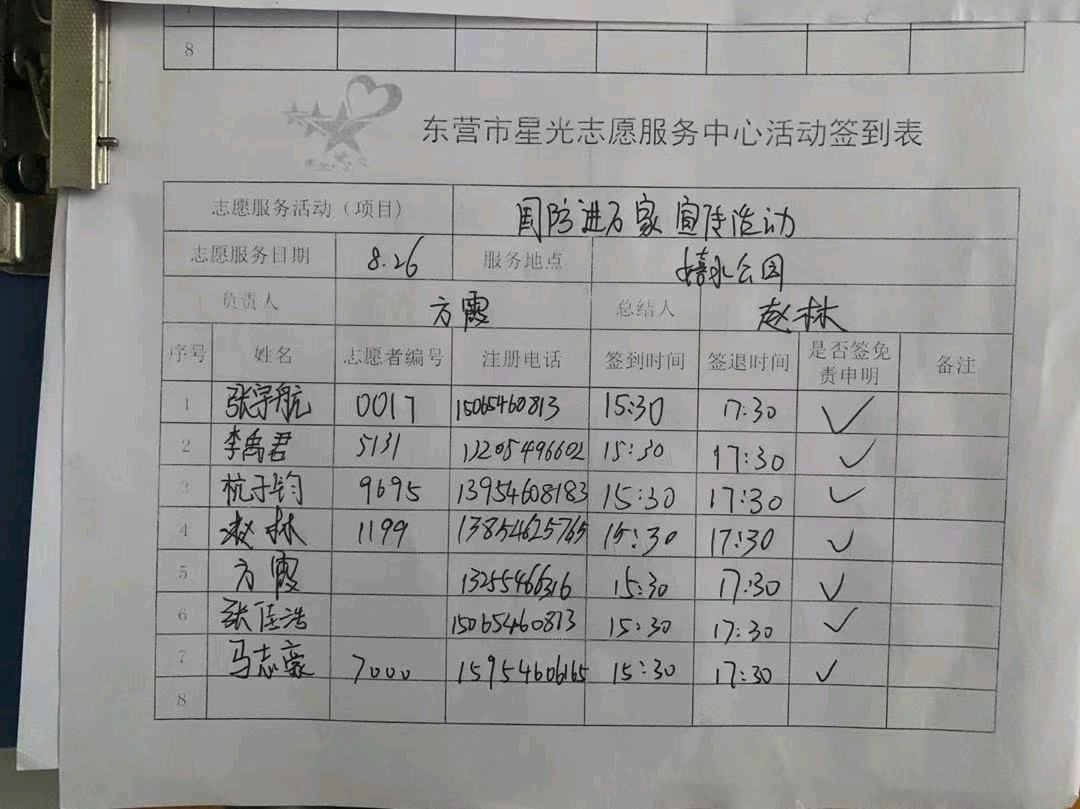 8
东营市星光志愿服务中心活动签到表
志愿服务活动（项目） 国防进万家宣传活动
志愿服务日期 8.26 服务地点 嬉水公园
负责人 方霞 总结人 赵林
序号 姓名 志愿者编号 注册电话 签到时间 签退时间 是否签免责申明 备注
1 张宇航 0017 15065460813 15:30 17:30 ✓
2 李禹君 5131 13205496602 15:30 17:30 ✓
3 杭子钧 9695 13954608183 15:30 17:30 ✓
4 赵林 1199 13854625765 15:30 17:30 ✓
5 方霞 15:30 17:30 ✓
6 张佳浩 15065460813 15:30 17:30 ✓
7 马志豪 7000 15954606165 15:30 17:30 ✓
8